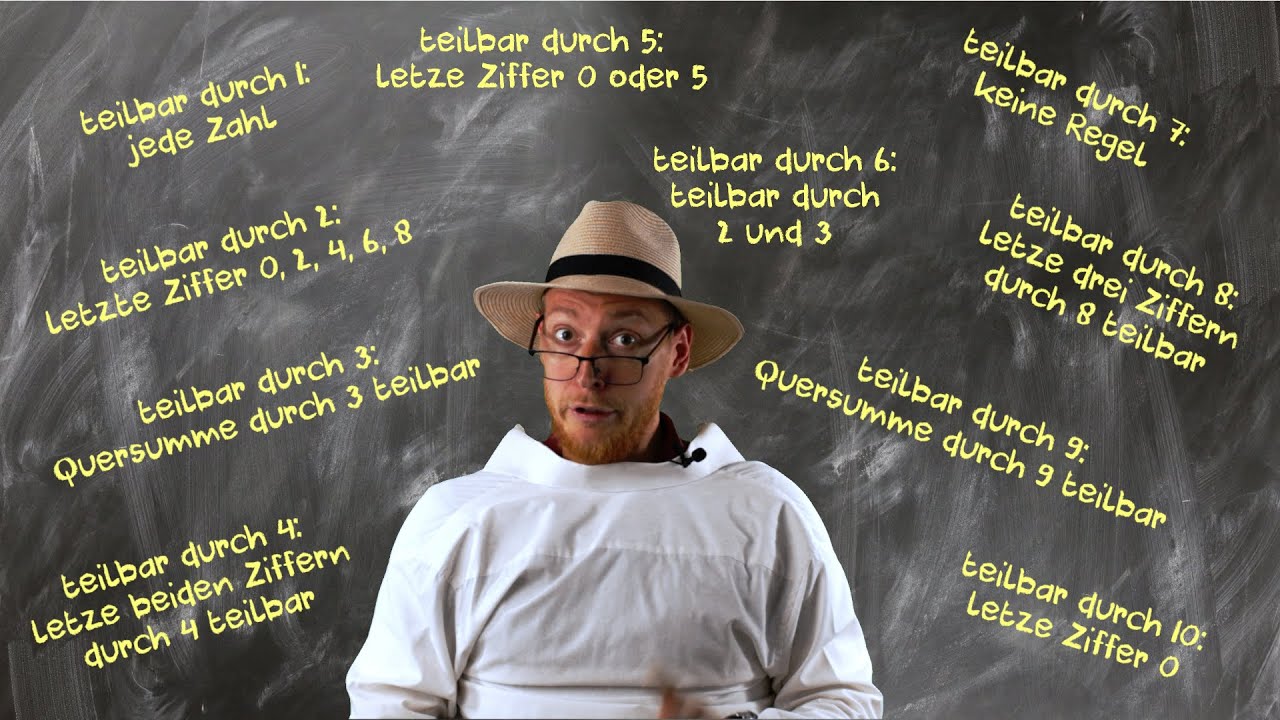 teilbar durch 1:
jede Zahl
teilbar durch 2:
letzte Ziffer 0, 2, 4, 6, 8
teilbar durch 3:
Quersumme durch 3 teilbar
teilbar durch 4:
letze beiden Ziffern
durch 4 teilbar
teilbar durch 5:
letze Ziffer 0 oder 5
teilbar durch 6:
teilbar durch
2 und 3
teilbar durch 7:
keine Regel
teilbar durch 8:
letze drei Ziffern
durch 8 teilbar
teilbar durch 9:
Quersumme durch 9 teilbar
teilbar durch 10:
letze Ziffer 0